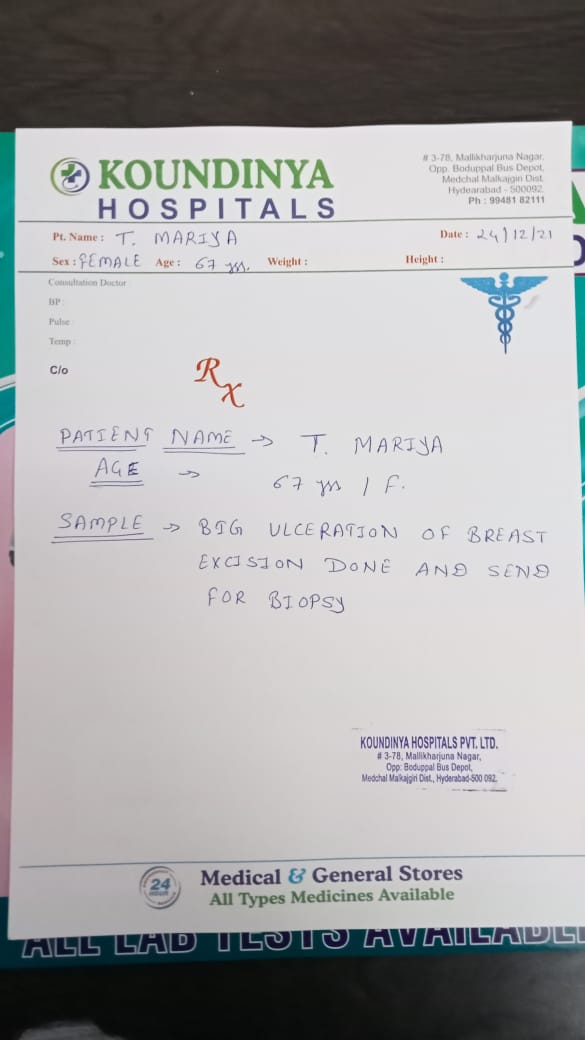 KOUNDINYA
HOSPITALS
# 3-78, Mallikharjuna Nagar,
Opp. Boduppal Bus Depot,
Medchal Malkajgiri Dist.
Hydearabad - 500092.
Ph : 99481 82111
Pt. Name : T. MARIYA
Date : 24/12/21
Sex : FEMALE Age : 67 yrs. Weight : Height :
Consultation Doctor :
BP :
Pulse :
Temp :
C/o
Rx
PATIENT NAME → T. MARIYA
AGE → 67 yrs / F.
SAMPLE → BIG ULCERATION OF BREAST
EXCISION DONE AND SEND
FOR BIOPSY
KOUNDINYA HOSPITALS PVT. LTD.
# 3-78, Mallikharjuna Nagar,
Opp: Boduppal Bus Depot,
Medchal Malkajgiri Dist., Hyderabad-500 092.
24
HOURS
Medical & General Stores
All Types Medicines Available
ALL LAB TESTS AVAILABLE